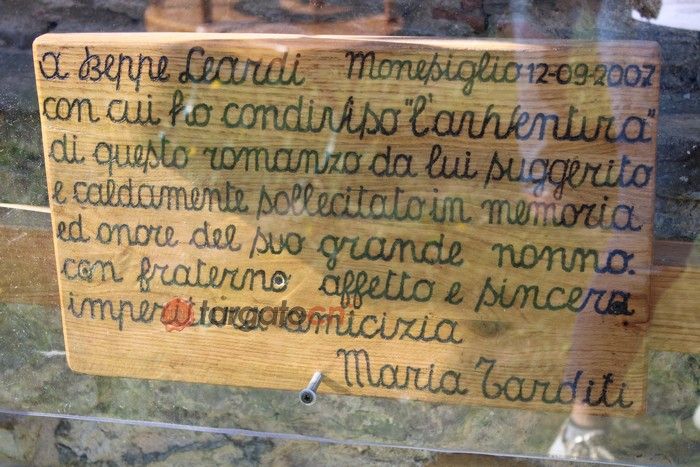 a Beppe Leardi Monesiglio 12-09-2007
con cui ho condiviso "l'avventura"
di questo romanzo da lui suggerito
e caldamente sollecitato in memoria
ed onore del suo grande nonno.
con fraterno affetto e sincera
amicizia
targatocn
Maria Tarditi